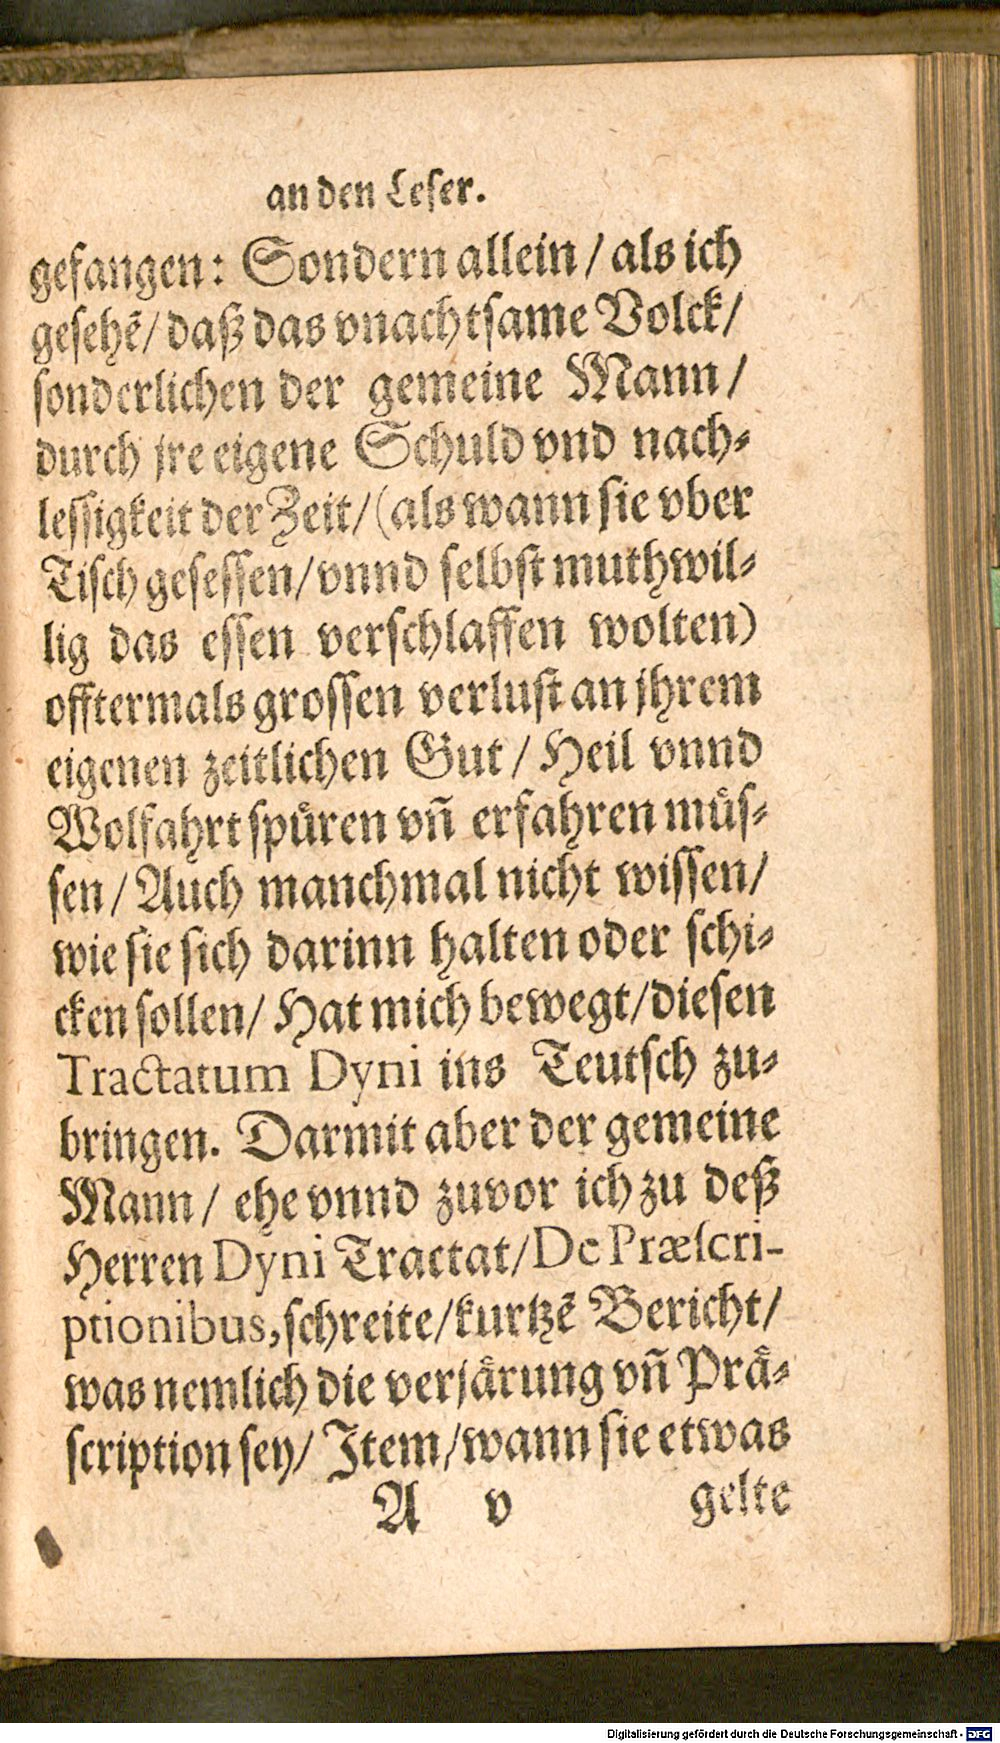 an den Leſer.
gefangen: Sondern allein / als ich
geſehẽ/ daß das vnachtſame Volck/
ſonderlichen der gemeine Mann /
durch jre eigene Schuld vnd nach⸗
leſſigkeit der Zeit/ (als wann ſie vber
Tiſch geſeſſen/ vnnd ſelbſt muthwil⸗
lig das eſſen verſchlaffen wolten)
offtermals groſſen verluſt an jhrem
eigenen zeitlichen Gut / Heil vnnd
Wolfahrt ſpuͤren vñ erfahren muͤſ⸗
ſen / Auch manchmal nicht wiſſen/
wie ſie ſich darinn halten oder ſchi⸗
cken ſollen/ Hat mich bewegt/ dieſen
Tractatum Dyni ins Teutſch zu⸗
bringen. Darmit aber der gemeine
Mann / ehe vnnd zuvor ich zu deß
Herren Dyni Tractat/ De Præſcri-
ptionibus, ſchreite/ kurtzẽ Bericht/
was nemlich die verjaͤrung vñ Praͤ⸗
ſcription ſey/ Item/ wann ſie etwas
A v gelte
Digitalisierung gefördert durch die Deutsche Forschungsgemeinschaft - DFG